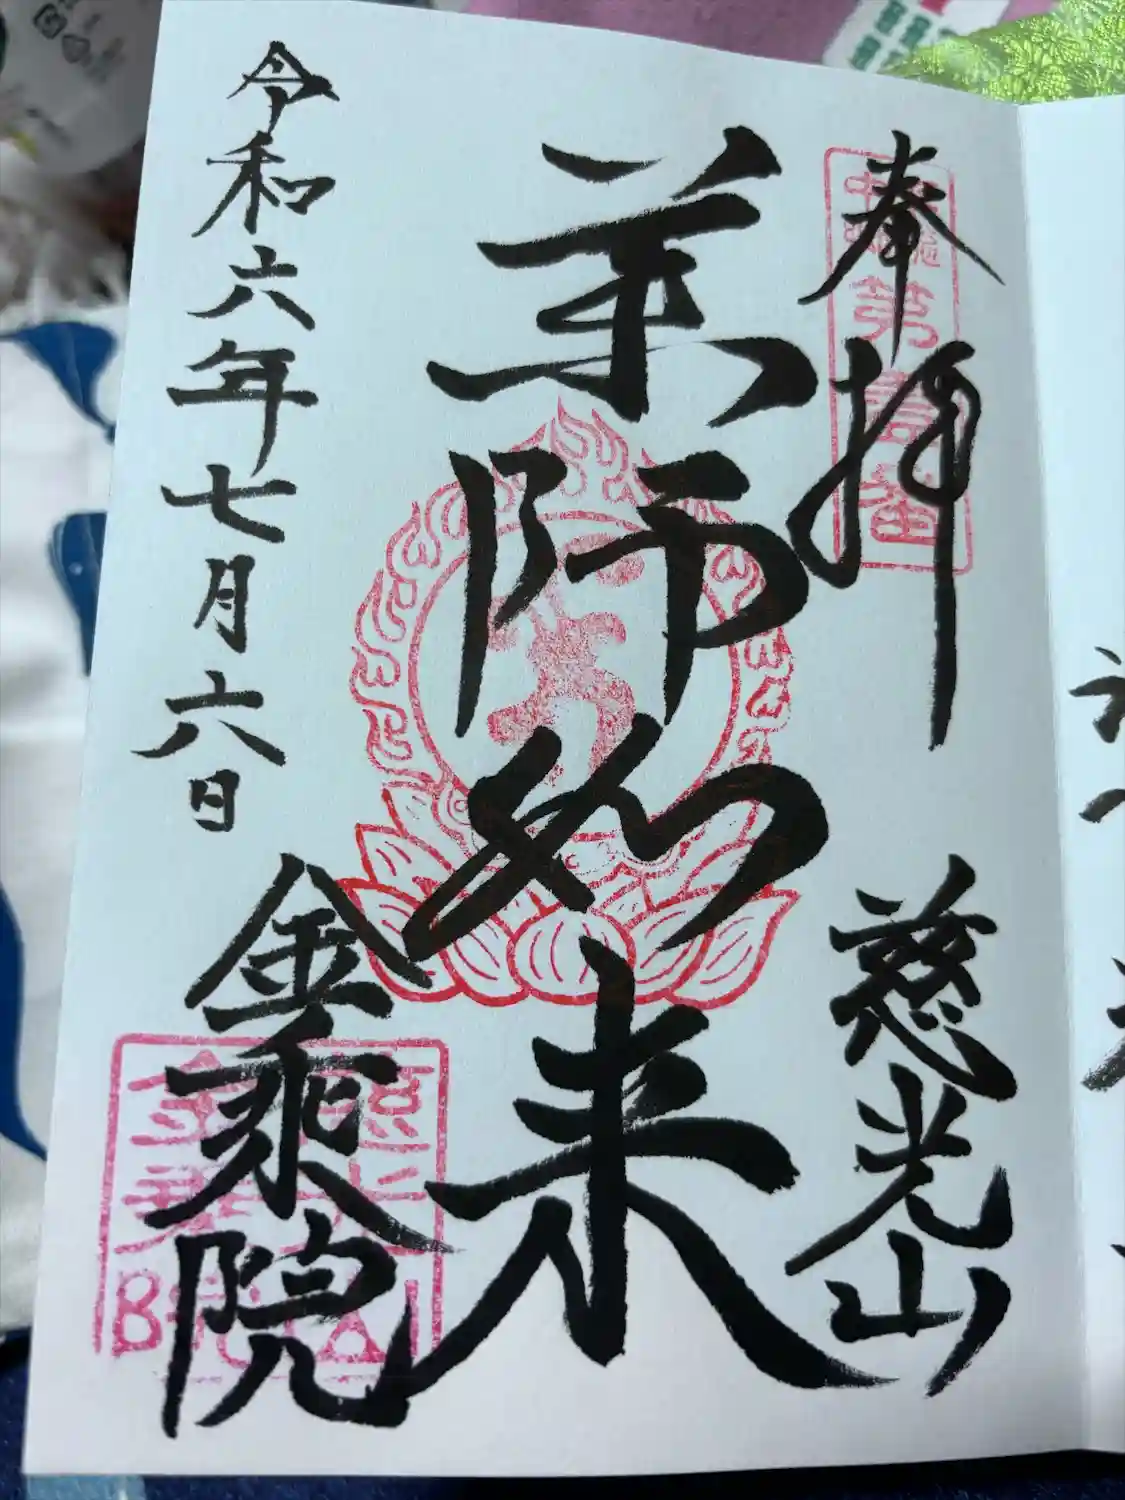 奉拝
慈光山
薬師如来
令和六年七月六日
金乗院